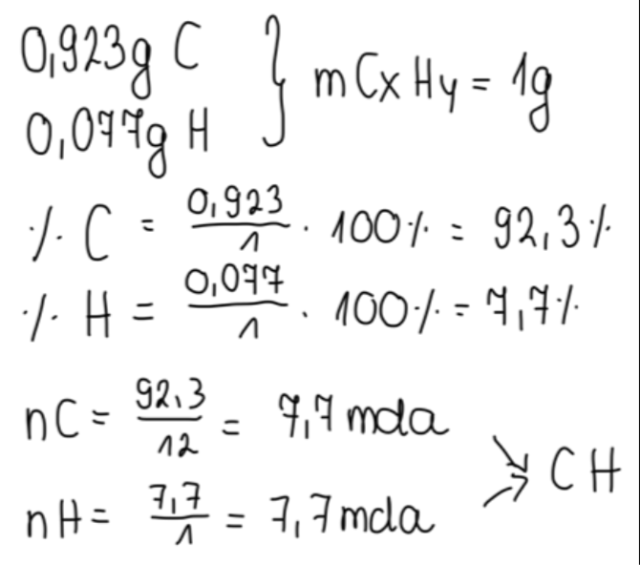 0,923g C
0,077g H } mCxHy = 1g
% C = 0,923/1 · 100% = 92,3%
% H = 0,077/1 · 100% = 7,7%
nC = 92,3/12 = 7,7 mola
nH = 7,7/1 = 7,7 mola
→ CH